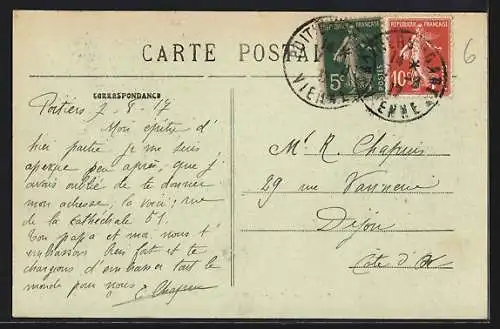 CARTE POSTALE
CORRESPONDANCE
Poitiers 7-8-17
Mon épitre d'
hier partie je me suis
aperçue peu après, que j'
avais oublié de te donner
mon adresse; la voici; rue
de la Cathédrale 51.
Ton papa et ma nous t'
embrassons bien fort et te
chargeons d'embrasser tout le
monde pour nous
Mr R. Chapuis
29 rue Vannerie
Dijon
Côte d'Or
REPUBLIQUE FRANÇAISE
5c
POSTES
REPUBLIQUE FRANÇAISE
10c
VIENNE
GARE
VIENNE
6